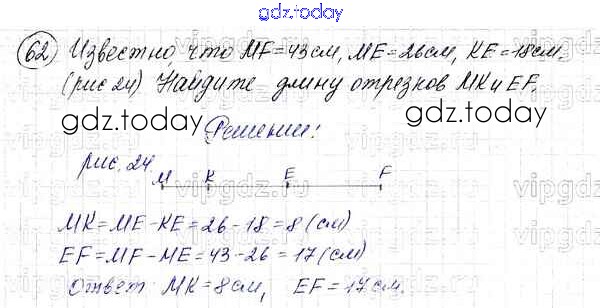 gdz.today
62 Известно, что MF=43см, ME=26см, KE=18см.
(рис 24) Найдите длину отрезков MK и EF.
gdz.today gdz.today
Решение:
рис. 24.
M K E F
MK=ME-KE=26-18=8 (см)
EF=MF-ME=43-26=17 (см)
Ответ MK=8см, EF=17см.